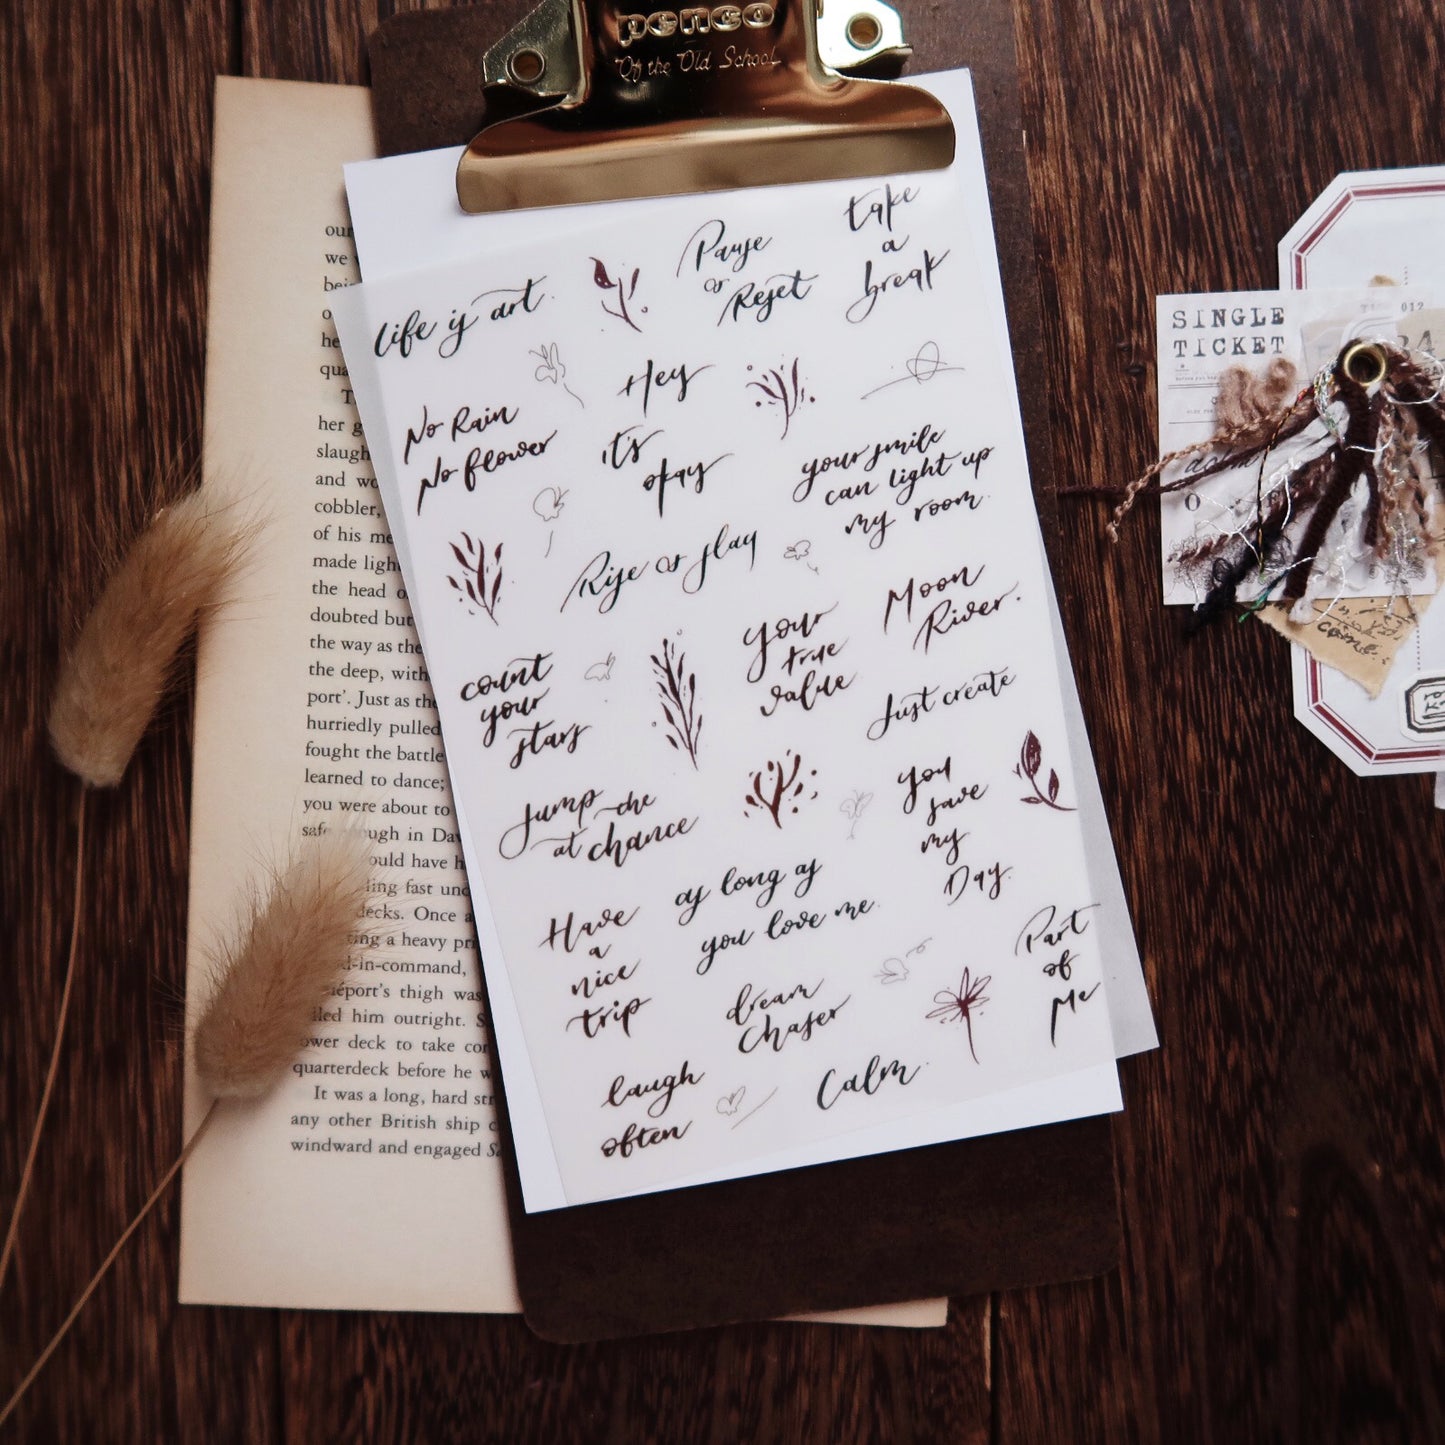 penco
Of the Old School
life is art.
Pause
or
Reset
take
a
break
No Rain
No flower
Hey
it's
okay
your smile
can light up
my room.
Rise or slay
count
your
stars
your
true
value
Moon
River.
Just create
Jump
at the
chance
you
save
my
Day.
Have
a
nice
trip
as long as
you love me.
Part
of
Me
dream
chaser
laugh
often
Calm.
our
we
he
her g
slaugh
and wo
cobbler,
of his me
made ligh
the head o
doubted but
the way as the
the deep, with
port'. Just as the
hurriedly pulled
fought the battle
learned to dance;
you were about to
ough in Da
ould have h
ling fast und
decks. Once a
ting a heavy pr
d-in-command,
éport's thigh was
lled him outright. S
ower deck to take co
quarterdeck before he w
It was a long, hard st
any other British ship
windward and engaged
SINGLE
TICKET
012
come.